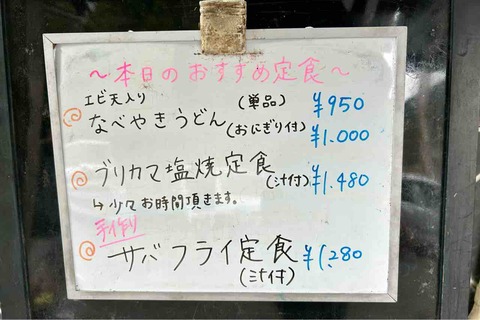 ～本日のおすすめ定食～
エビ天入り
なべやきうどん (単品) ¥950
(おにぎり付) ¥1.000
ブリカマ塩焼定食 (汁付) ¥1.480
↳少々お時間頂きます。
手作り
サバフライ定食 ¥1.280
(汁付)